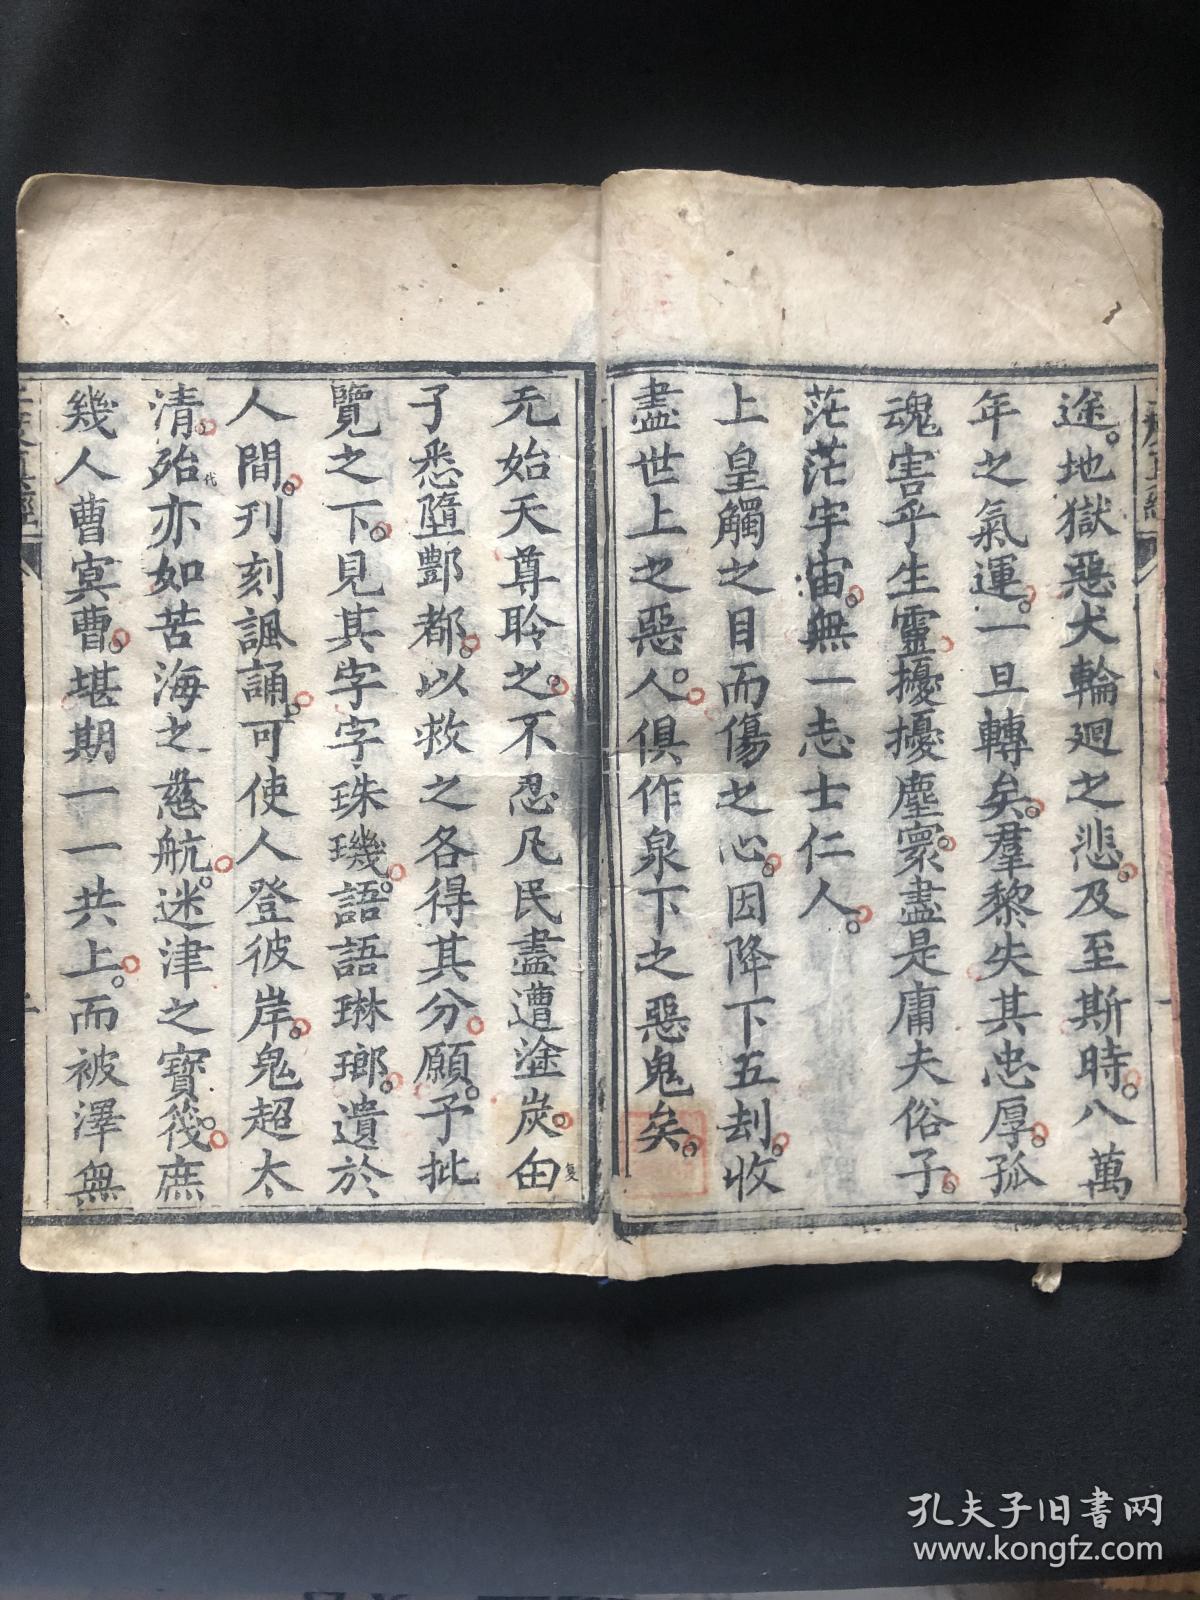 途。地獄惡犬輪廻之悲。及至斯時。八萬
年之氣運。一旦轉矣。羣黎失其忠厚。孤
魂害乎生靈。擾擾塵寰。盡是庸夫俗子。
茫茫宇宙。無一志士仁人。
上皇觸之目而傷之心。因降下五刦。收
盡世上之惡人。俱作泉下之惡鬼矣。
无始天尊聆之。不忍凡民盡遭塗炭。由
复
子悉墮酆都。以救之各得其分。願。予批
覽之下。見其字字珠璣。語語琳瑯。遺於
人間。刊刻諷誦。可使人登彼岸。鬼超太
清。殆亦如苦海之慈航。迷津之寶筏。庶
代
幾人曹寞曹。堪期一一共上。而被澤無
孔夫子旧书网
www.kongfz.com